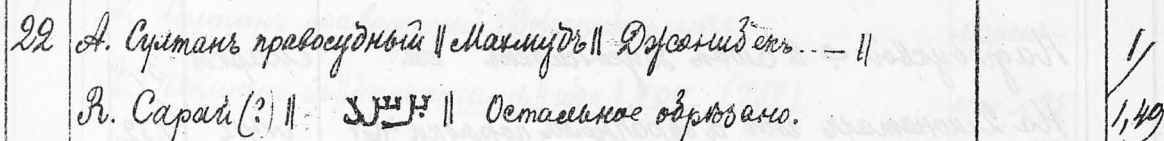 22 А. Султанъ правосудный || Махмудъ || Джанибекъ... — || 1/
R. Сарай (?) || || Остальное обрѣзано. 1,49